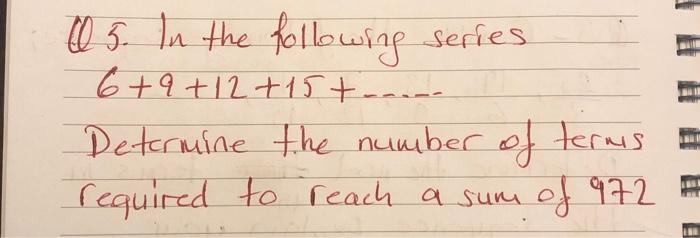 Q 5. In the following series
6+9+12+15+-----
Determine the number of terms
required to reach a sum of 972